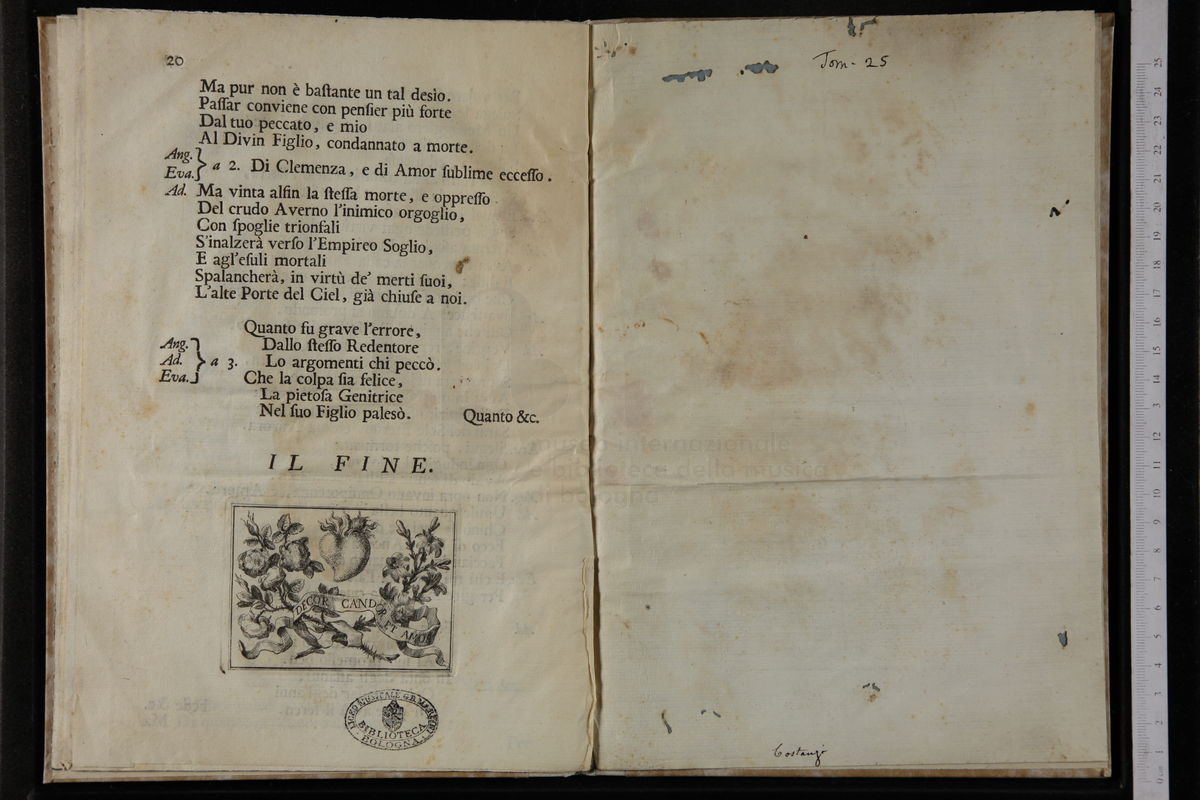 20
Ma pur non è baſtante un tal desìo.
Paſſar conviene con penſier più forte
Dal tuo peccato, e mio
Al Divin Figlio, condannato a morte.
Ang.
Eva. } a 2. Di Clemenza, e di Amor ſublime ecceſſo.
Ad. Ma vinta alfin la ſteſſa morte, e oppreſſo
Del crudo Averno l'inimico orgoglio,
Con ſpoglie trionfali
S'inalzerà verſo l'Empireo Soglio,
E agl'eſuli mortali
Spalancherà, in virtù de' merti ſuoi,
L'alte Porte del Ciel, già chiuſe a noi.
Quanto fu grave l'errore,
Ang. Dallo ſteſſo Redentore
Ad. } a 3. Lo argomenti chi peccò.
Eva. Che la colpa ſia felice,
La pietoſa Genitrice
Nel ſuo Figlio palesò. Quanto &c.
IL FINE.
DECOR CANDOR ET AMOR
LICEO MUSICALE G.B. MARTINI
BIBLIOTECA
BOLOGNA
Tom. 25
museo internazionale
e biblioteca della musica
di bologna
Costanzi